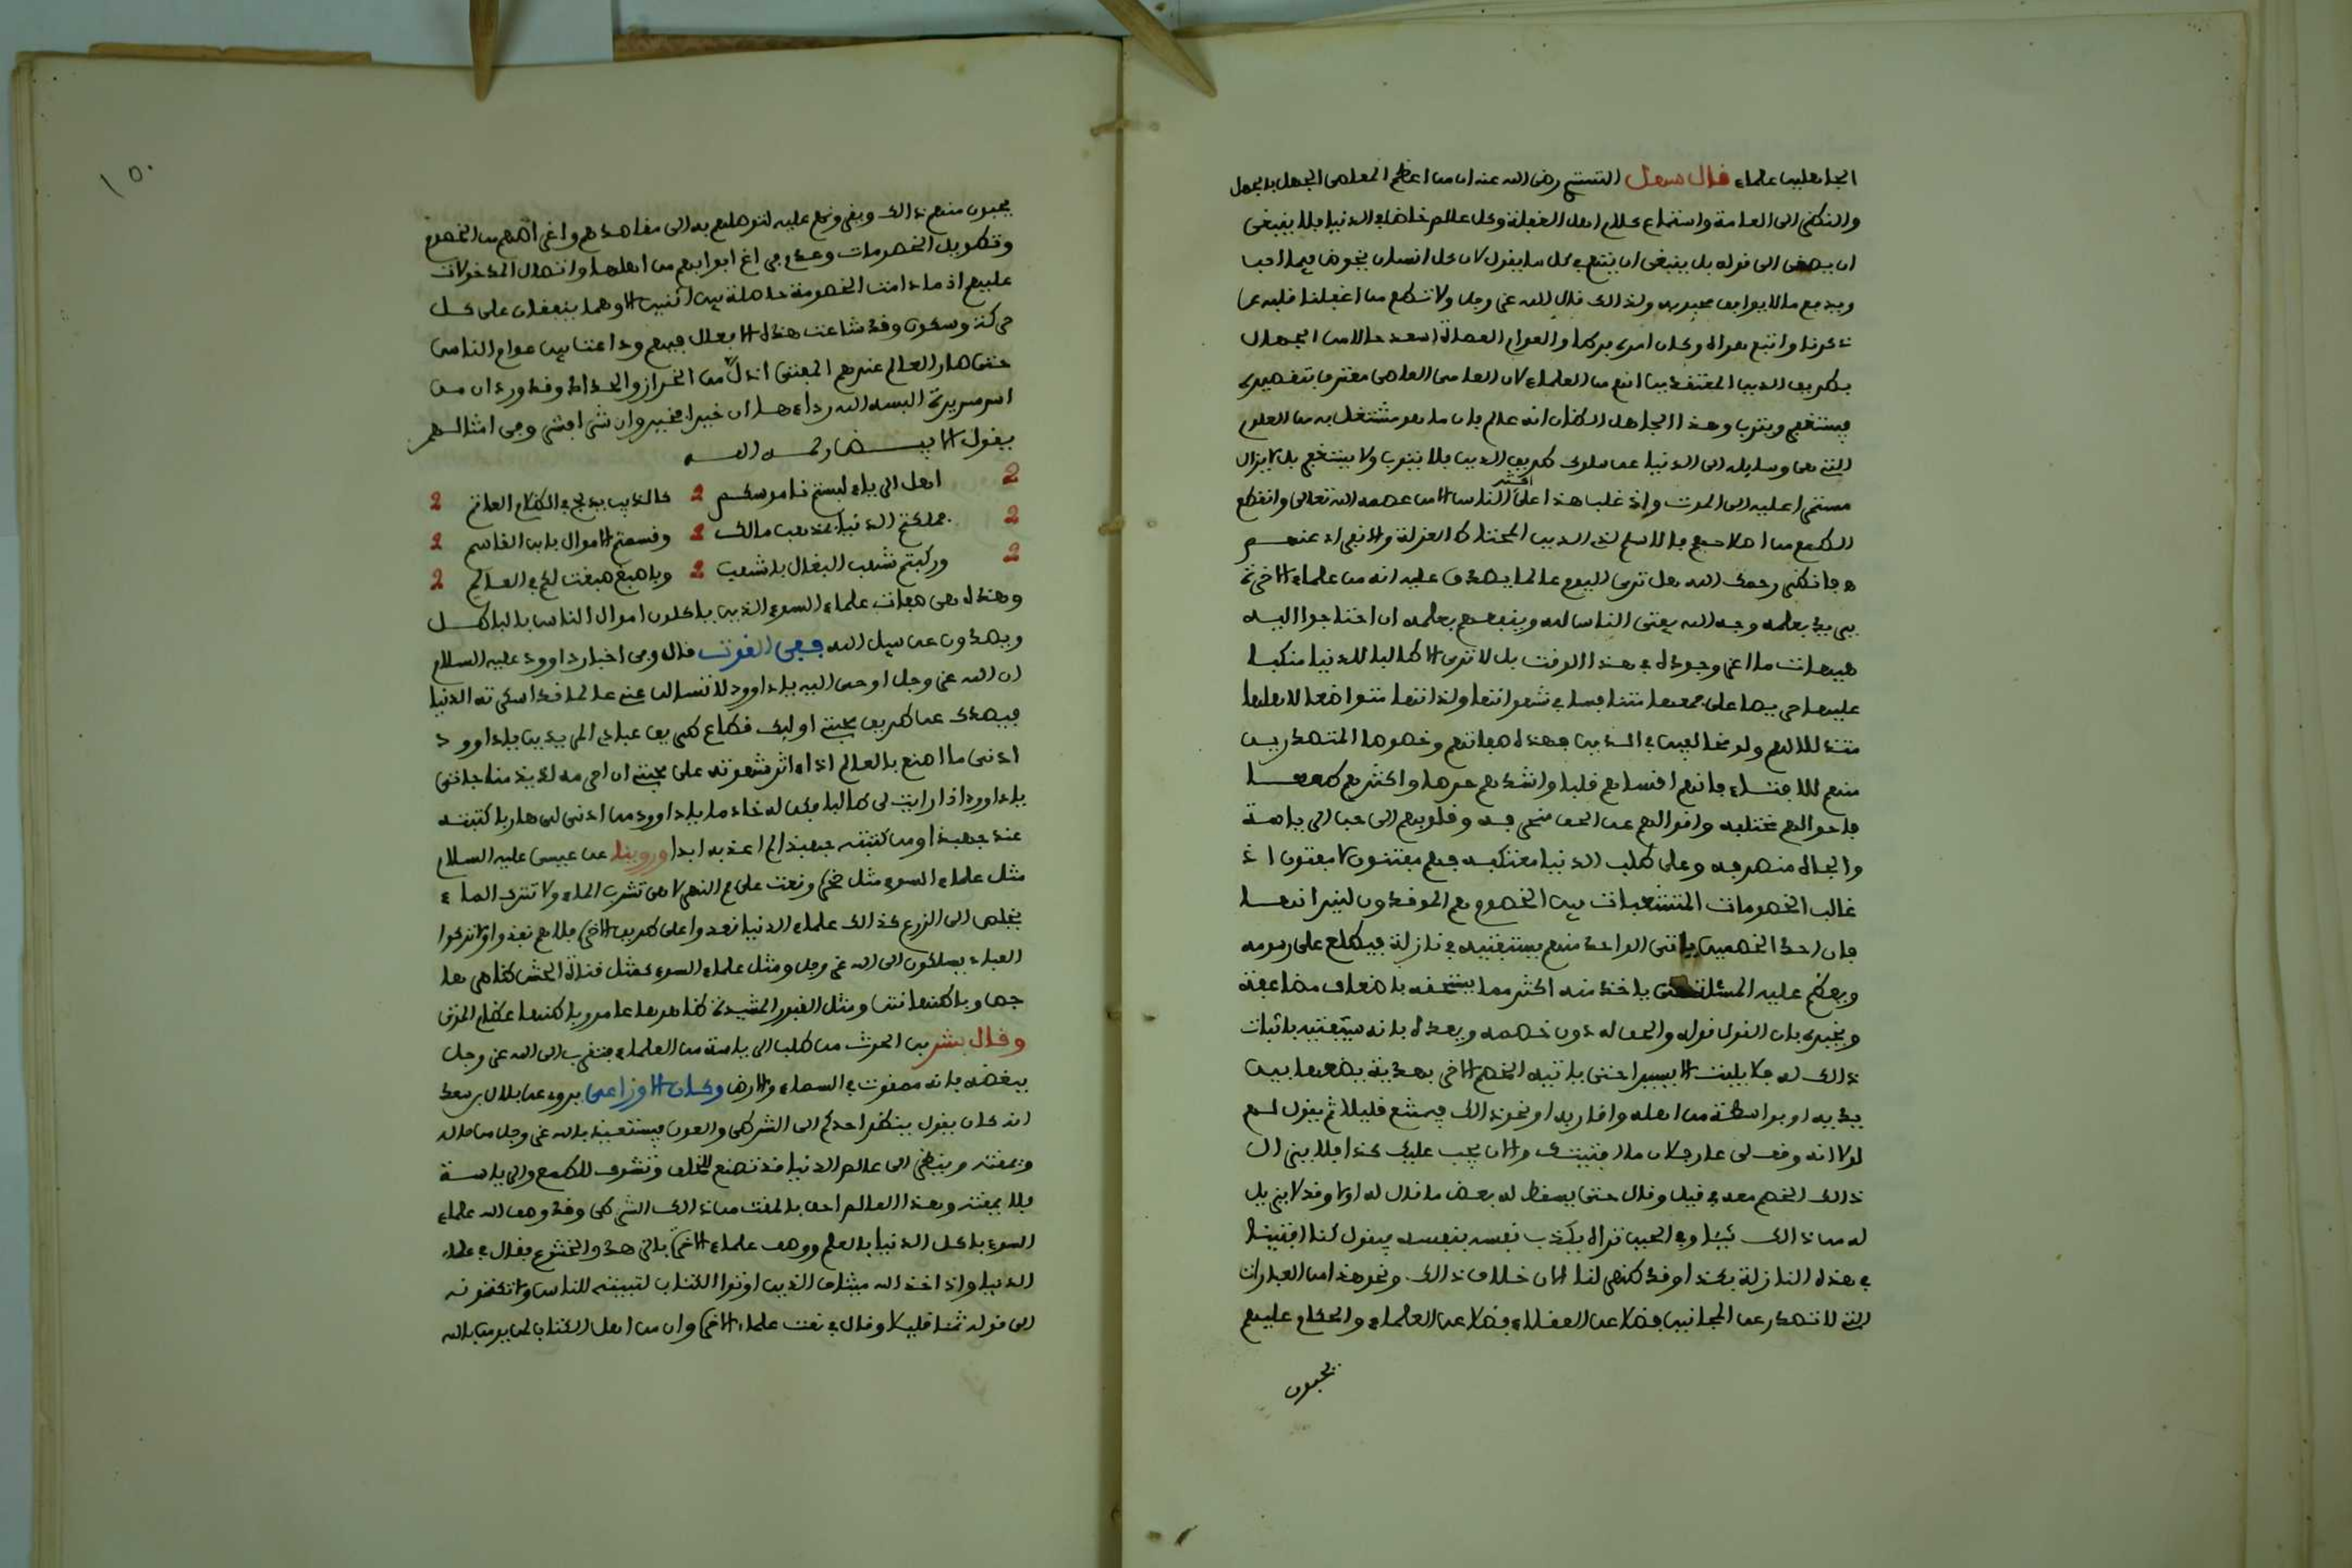 الجاهلين علماء قال سهل التستري رضي الله عنه ان من اعظم المعاصي الجهل بالجهل
والنظر الى العامة واستماع كلام اهل الغفلة وكل عالم خاض في الدنيا فلا ينبغي
ان يصغى الى قوله بل ينبغي ان يتهم في كل ما يقول لان كل انسان يخوض فيما احب
ويدفع ما لا يوافق محبوبه ولذالك قال الله عز وجل ولا تطع من اغفلنا قلبه عن
ذكرنا واتبع هواه وكان امره فرطا والعوام العصاة اسعد حالا من الجهال
بطريق الدين المعتقدين انهم من العلماء لان العامي العاصي معترف بتقصيره
فيستغفر ويتوب وهذا الجاهل الظان انه عالم بان ما هو مشتغل به من العلوم
التي هي وسايله الى الدنيا عن سلوك طريق الدين فلا يتوب ولا يستغفر بل لا يزال
مستمرا عليه الى الموت واذ غلب هذا على اكثر الناس الا من عصمه الله تعالى وانقطع
الطمع من اصلاحهم فالاسلم لذي الدين المحتاط العزلة والانفراد عنهم
ه فانظر رحمك الله هل ترى اليوم عالما يصدق عليه انه من علماء الاخرة
يريد بعلمه وجه الله يفتي الناس لله وينفعهم بعلمه ان احتاجوا اليه
هيهات ما اعز وجوده في هذا الوقت بل لا ترى الا طالبا للدنيا منكبا
عليها حريصا على جمعها متنافسا في شهواتها ولذاتها متواضعا لاهلها
متذللا لهم ولو مخالفين في الدين فهذه صفاتهم وخصوصا المتصدرين
منهم للافتاء فانهم اقساهم قلبا واشدهم حرصا واكثرهم طمعا
فاحوالهم مختلفة واقوالهم عن الحق منحرفة وقلوبهم الى حب الرياسة
والجاه منصرفة وعلى طلب الدنيا معتكفة فهم مفتنون لا مفتون اذ
غالب الخصومات المتشعبات بين الخصوم هم الموقدون لنيرانها
فان احد الخصمين ياتي الواحد منهم يستفتيه في نازلة فيطلع على رسومه
ويعظم عليه المسئلة حتى ياخذ منه اكثر مما يستحقه باضعاف مضاعفة
ويخبره بان القول قوله والحق له دون خصمه ويعده بانه سيفتيه باثبات
ذالك له فلا يلبث الا يسيرا حتى ياتيه الخصم الاخر بهدية يضعها بين
يديه او بواسطة من اهله واقاربه او نحو ذالك فيمتنع قليلا ثم يقول لهم
لولا انه وقف لي عار جلان ما افتيتك والان يجب عليك كذا فلا يزال
ذالك الخصم معه في قيل وقال حتى يسقط له بعض ما قال له اولا وقد لا يزيل
له من ذالك شيئا وفي الحين تراه يكذب نفسه بنفسه فيقول كنا افتينا
في هذه النازلة بكذا وقد ظهر لنا الان خلاف ذالك ونحو هذا من العبارات
التي لا تصدر عن المجانين فضلا عن العقلاء فضلا عن العلماء والحكام عليهم
يحبون
١٥٠
يحبون منهم ذالك وبقي ونحم عليه لتوصلهم به الى مقاصدهم واغراضهم من الخصوم
وتطويل الخصومات وعدم فراغ ابوابهم من اهلها واتصال المدخولات
عليهم اذ ما دامت الخصومة حاصلة بين اثنين الا وهما ينفقان على كل
حركة وسكون وقد شاعت هذه الافعال فيهم وذاعت بين عوام الناس
حتى صار العالم عندهم المفتي اذل من الخراز والحداد وقد ورد ان من
اسر سريرة البسه الله رداءها ان خيرا فخير وان شرا فشر وفي امثالهم
يقول البيضاوي رحمه الله
اهل الرياء لبستم ناموسكم كالذيب يدلج في الظلام العاتم
فملكتم الدنيا بمذهب مالك وقسمتم الاموال بابن القاسم
وركبتم شهب البغال باشهب وباصبغ صبغت لكم في العالم
وهذه هي صفات علماء السوء الذين ياكلون اموال الناس بالباطل
ويصدون عن سبيل الله ففي القوت قال وفي اخبار داوود عليه السلام
ان الله عز وجل اوحى اليه يا داوود لا تسالن عني عالما قد اسكرته الدنيا
فيصدك عن طريق محبتي اوليك قطاع طريق عبادي المريدين يا داوود
ادنى ما اصنع بالعالم اذا اثر شهوته على محبتي ان احرمه لذيذ مناجاتي
يا داوود اذا رايت لي طالبا فكن له خادما يا داوود من ادنى لي هاربا كتبته
عند جهبذا ومن كتبته جهبذا لم اعذبه ابدا وروينا عن عيسى عليه السلام
مثل علماء السوء مثل صخرة وقعت على فم النهر لا هي تشرب الماء ولا تترك الماء
يخلص الى الزرع كذالك علماء الدنيا قعدوا على طريق الاخرة فلا هم نفذوا ولا تركوا
العباد يسلكون الى الله عز وجل ومثل علماء السوء كمثل قناة الحش ظاهرها
جص وباطنها نتن ومثل القبور المشيدة ظاهرها عامر وباطنها عظام الموتى
وقال بشر بن الحرث من طلب الرياسة من العلماء فتقرب الى الله عز وجل
ببغضه فانه ممقوت في السماء والارض وكان الاوزاعي يروى عن بلال بن سعد
انه كان يقول ينظر احدكم الى الشرطي والعون فيستعيذ بالله عز وجل من حاله
ويمقته وينظر الى عالم الدنيا قد تصنع للخلق وتشوف للطمع والرياسة
فلا يمقته وهذا العالم احق بالمقت من ذالك الشرطي وقد وصف الله علماء
السوء باكل الدنيا بالعلم ووصف علماء الاخرة بالزهد والخشوع فقال في علماء
الدنيا واذ اخذ الله ميثاق الذين اوتوا الكتاب لتبيننه للناس ولا تكتمونه
الى قوله ثمنا قليلا وقال في نعت علماء الاخرة وان من اهل الكتاب لمن يومن بالله